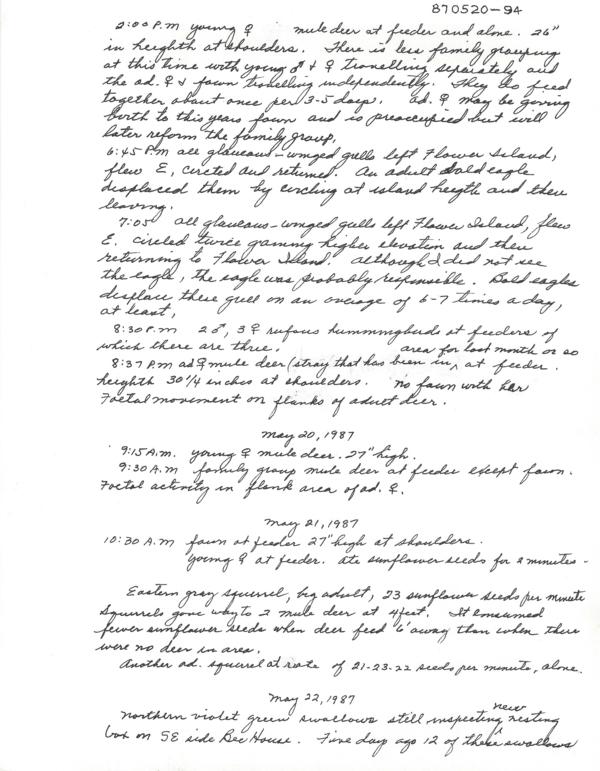 870520-94
2:00 P.M young ♀ mule deer at feeder and alone. 26"
in heighth at shoulders. There is less family grouping
at this time with young ♂ & ♀ travelling separately and
the ad. ♀ & fawn travelling independently. They do feed
together about once per 3-5 days. ad. ♀ may be giving
birth to this years fawn and is preoccupied but will
later reform the family group.
6:45 P.M all glaucous-winged gulls left Flower Island,
flew E, circled and returned. An adult bald eagle
displaced them by circling at island heigth and then
leaving.
7:05 all glaucous-winged gulls left Flower Island, flew
E. circled twice gaining higher elevation and then
returning to Flower Island. Although I did not see
the eagle, the eagle was probably responsible. Bald eagles
displace these gull on an average of 6-7 times a day,
at least,
8:30 P.m 2 ♂, 3 ♀ rufous hummingbirds at feeders of
which there are three. area for last month or so
8:37 P.M ad ♀ mule deer (stray that has been in ^ at feeder.
heighth 30 1/4 inches at shoulders. no fawn with her
Foetal movement on flanks of adult deer.
May 20, 1987
9:15 A.m. young ♀ mule deer. 27" high.
9:30 A.M family group mule deer at feeder except fawn.
Foetal activity in flank area of ad. ♀.
May 21, 1987
10:30 A.M fawn at feeder 27" high at shoulders.
young ♀ at feeder. ate sunflower seeds for 2 minutes -
Eastern gray squirrel, big adult, 23 sunflower seeds per minute
Squirrels gave way to 2 mule deer at 4 feet. It consumed
fewer sunflower seeds when deer feed 6' away than when there
were no deer in area.
Another ad. squirrel at rate of 21-23-22 seeds per minute, alone.
May 22, 1987
new
northern violet green swallows still inspecting ^ nesting
box on SE side Bee House. Five days ago 12 of these swallows